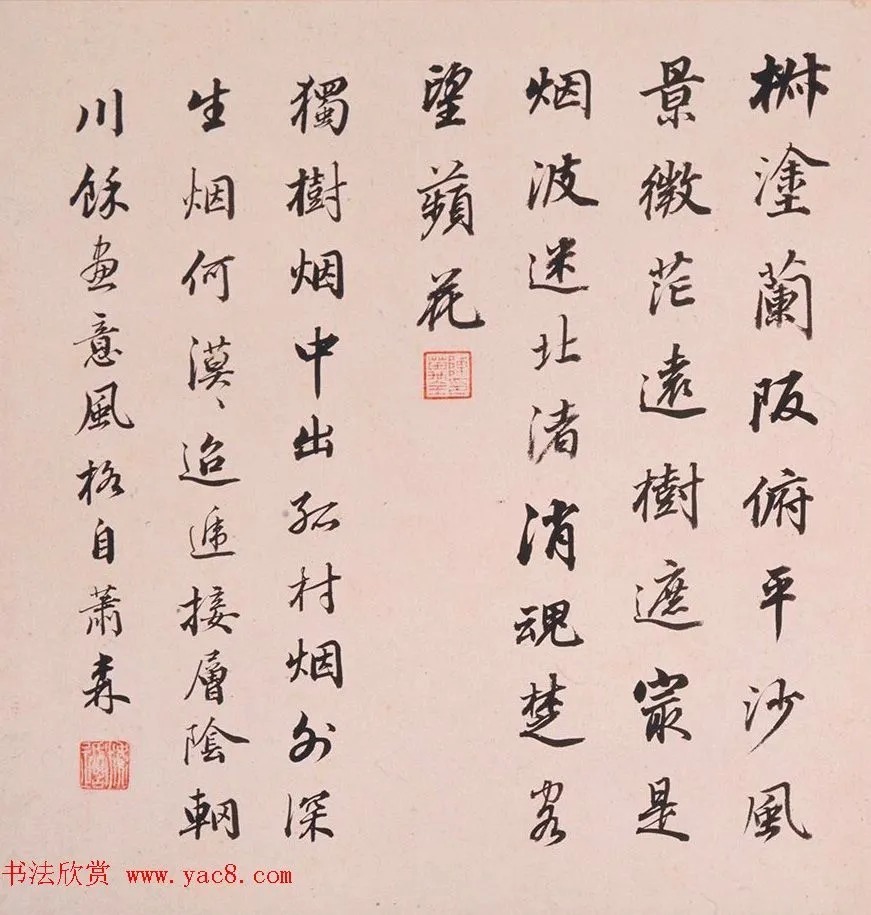 椒塗蘭阪俯平沙風
景微茫遠樹遮寂是
烟波迷北渚消魂楚客
望蘋花
獨樹烟中出孤村烟外深
生烟何漠〻迢遞接層陰輞
川餘畫意風格自蕭森
书法欣赏 www.yac8.com